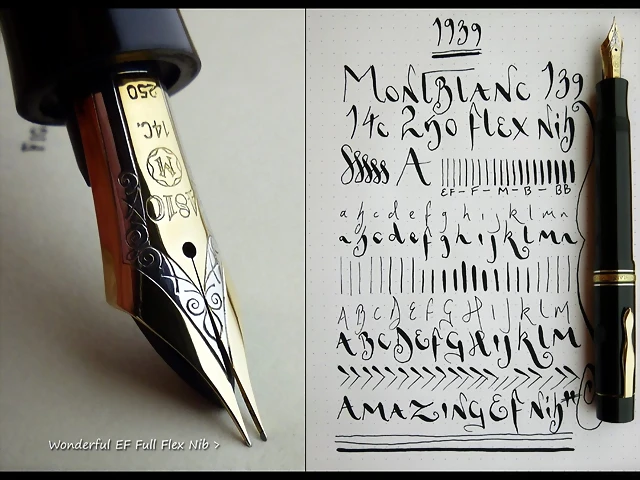 250
14C.
M
4810
Wonderful EF Full Flex Nib >
1939
MontBlanc 139
14c 250 flex Nib
A
EF - F - M - B - BB
a b c d e f g h i j k l m n
a b c d e f g h i j k l m n
A B C D E F G H I J K L M
A B C D E f G H I J K L M
AMAZiNG Ef Nib"